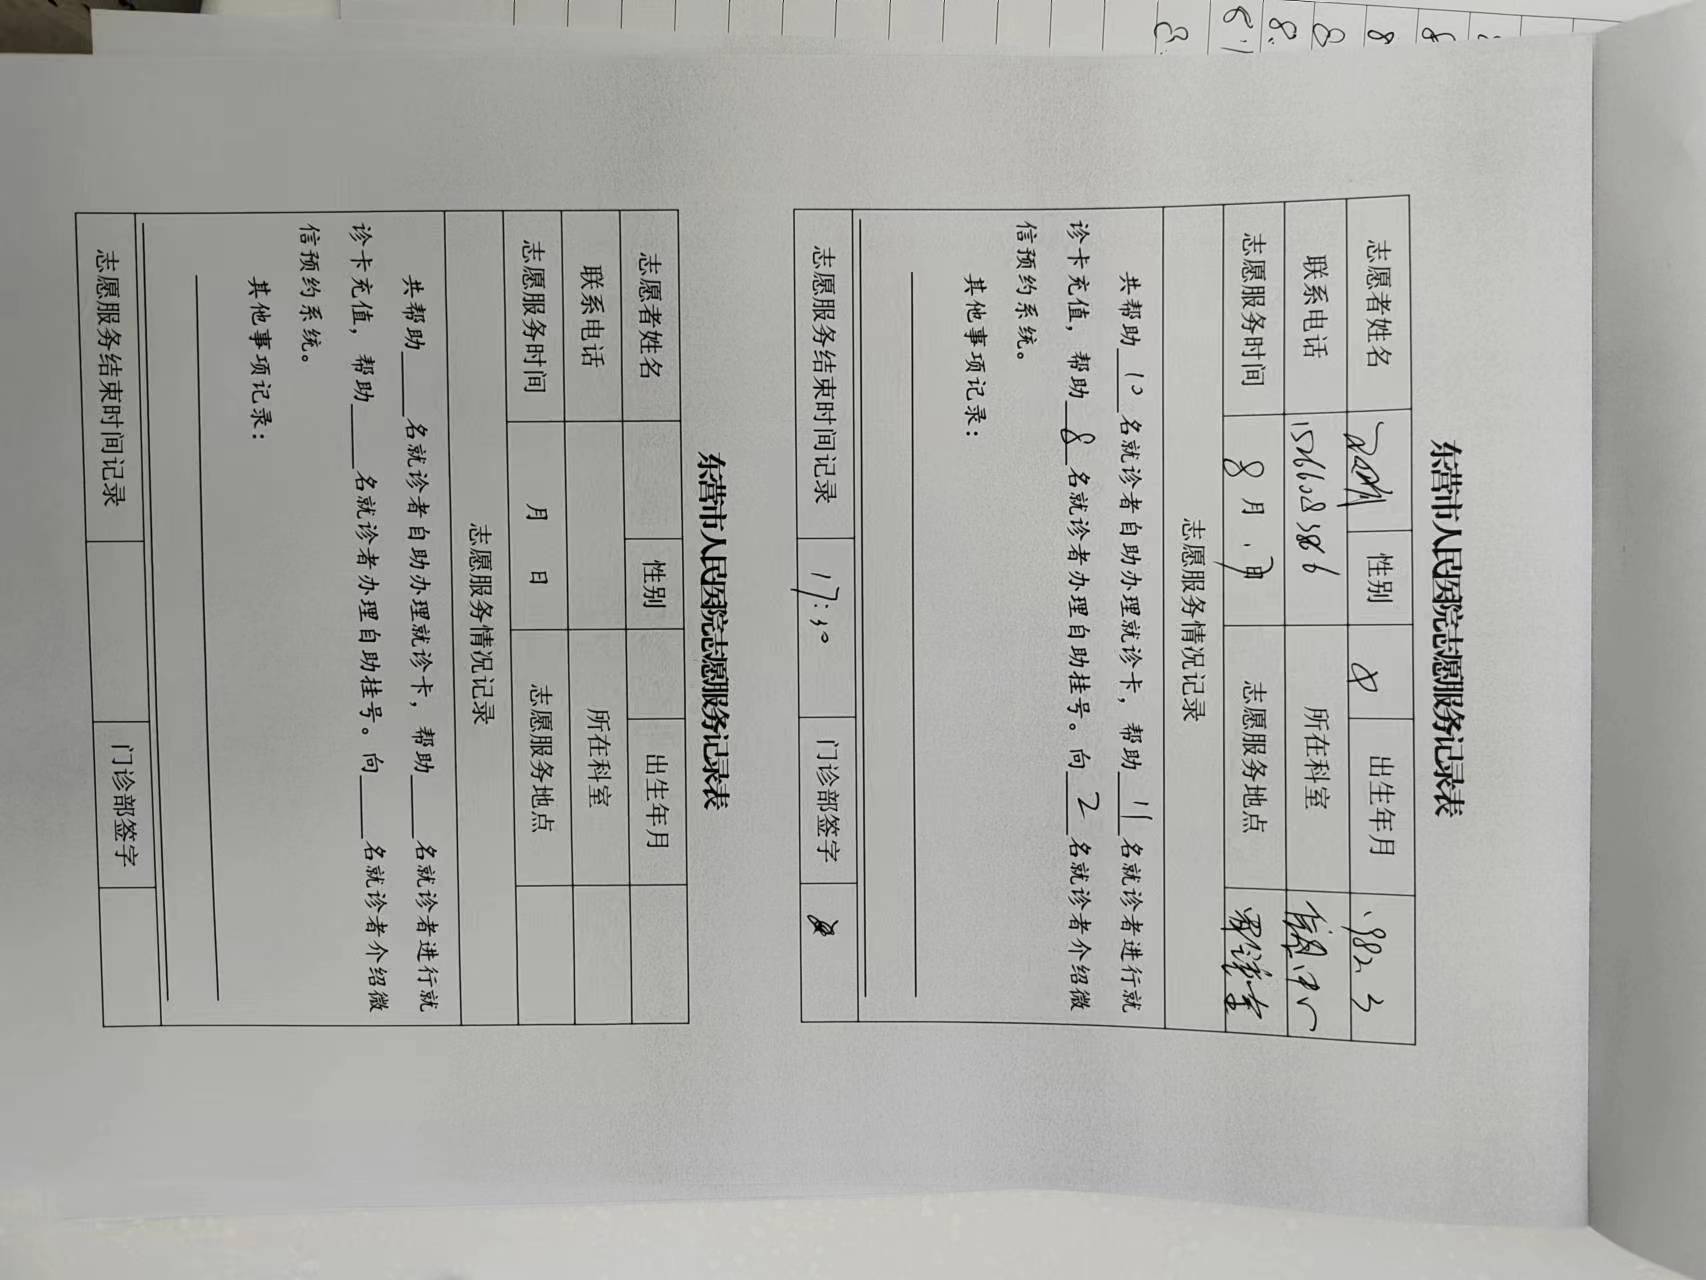 东营市人民医院志愿服务记录表
志愿者姓名 性别 女 出生年月 1982.3
联系电话 15266085866 所在科室
志愿服务时间 8月 志愿服务地点
志愿服务情况记录
共帮助 10 名就诊者自助办理就诊卡，帮助 11 名就诊者进行就
诊卡充值，帮助 8 名就诊者办理自助挂号。向 2 名就诊者介绍微
信预约系统。
其他事项记录：
志愿服务结束时间记录 17:30 门诊部签字
东营市人民医院志愿服务记录表
志愿者姓名 性别 出生年月
联系电话 所在科室
志愿服务时间 月 日 志愿服务地点
志愿服务情况记录
共帮助____名就诊者自助办理就诊卡，帮助____名就诊者进行就
诊卡充值，帮助____名就诊者办理自助挂号。向____名就诊者介绍微
信预约系统。
其他事项记录：
志愿服务结束时间记录 门诊部签字